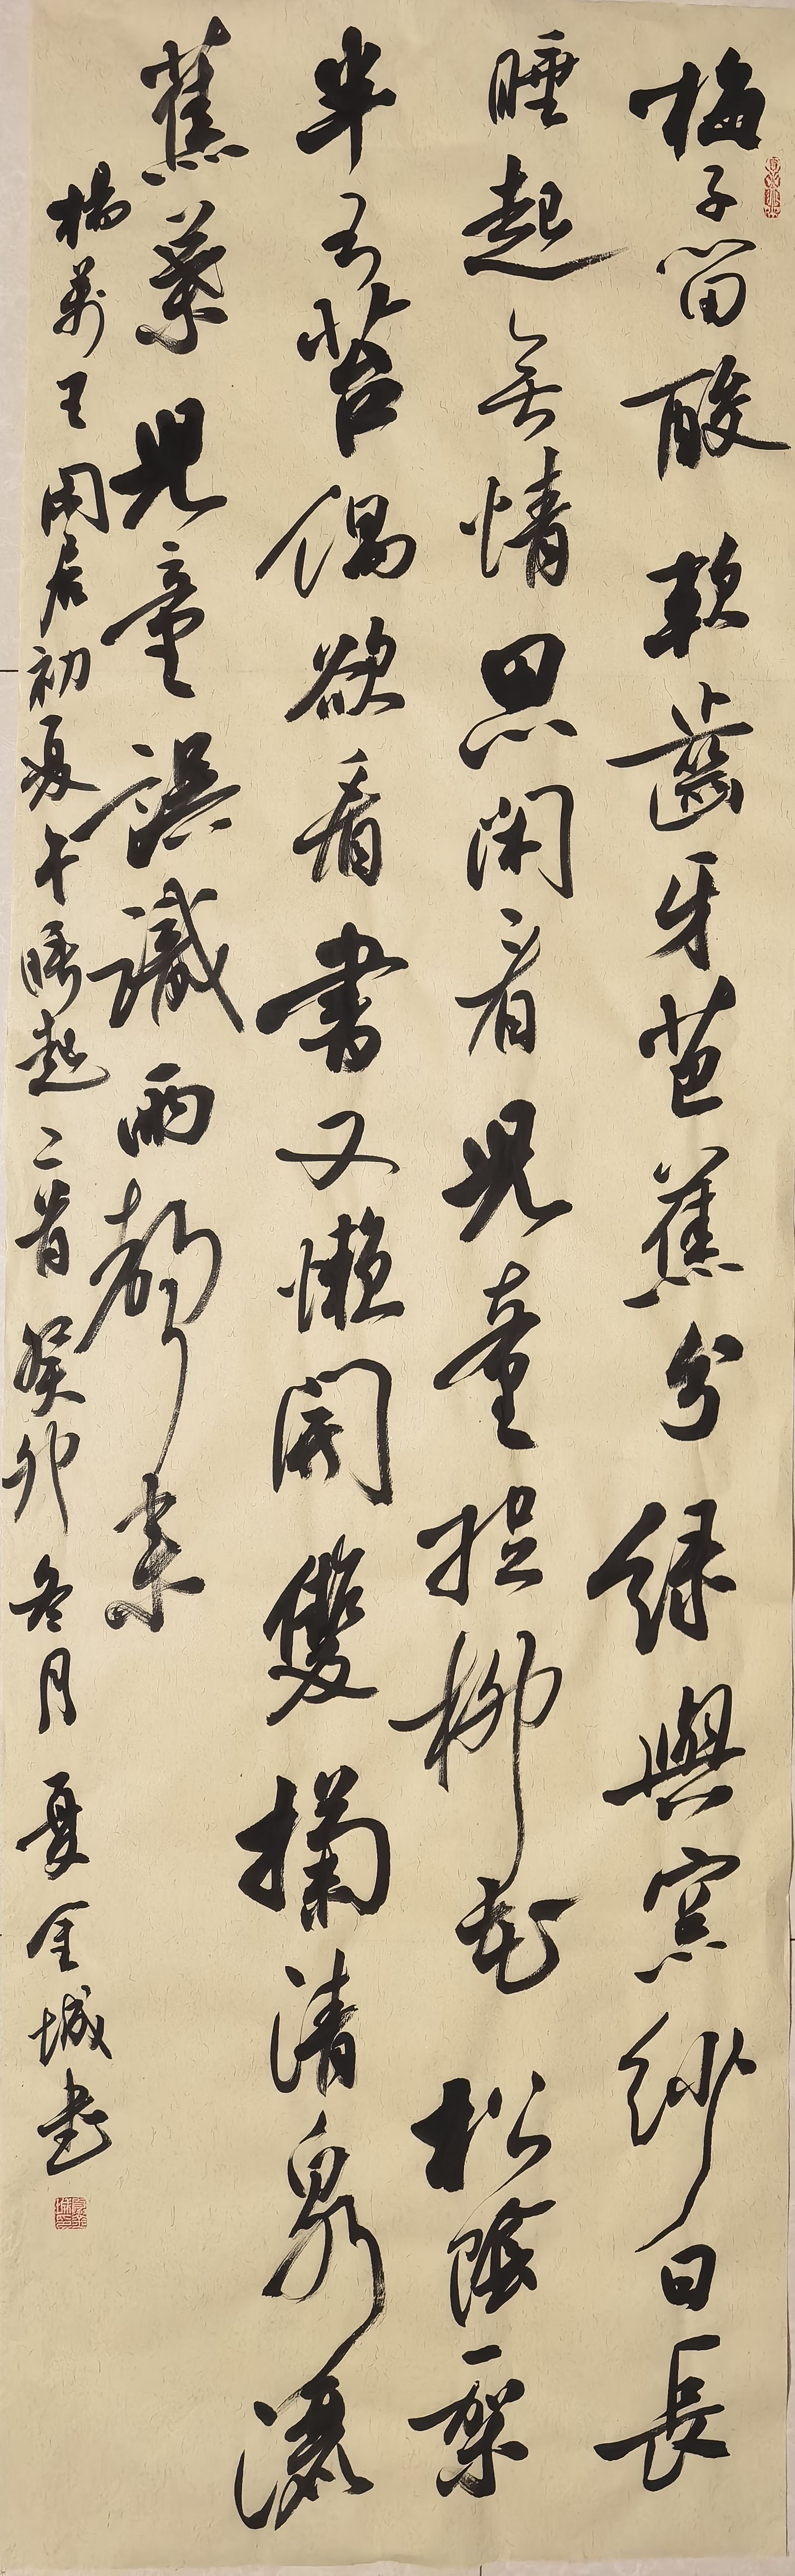 梅子留酸軟齒牙芭蕉分綠與窗紗日長
睡起無情思閑看兒童捉柳花松陰一架
半弓苔偶欲看書又懶開雙掬清泉灑
蕉葉兒童誤識雨聲來
楊萬里閑居初夏午睡起二首癸卯冬月夏金城書